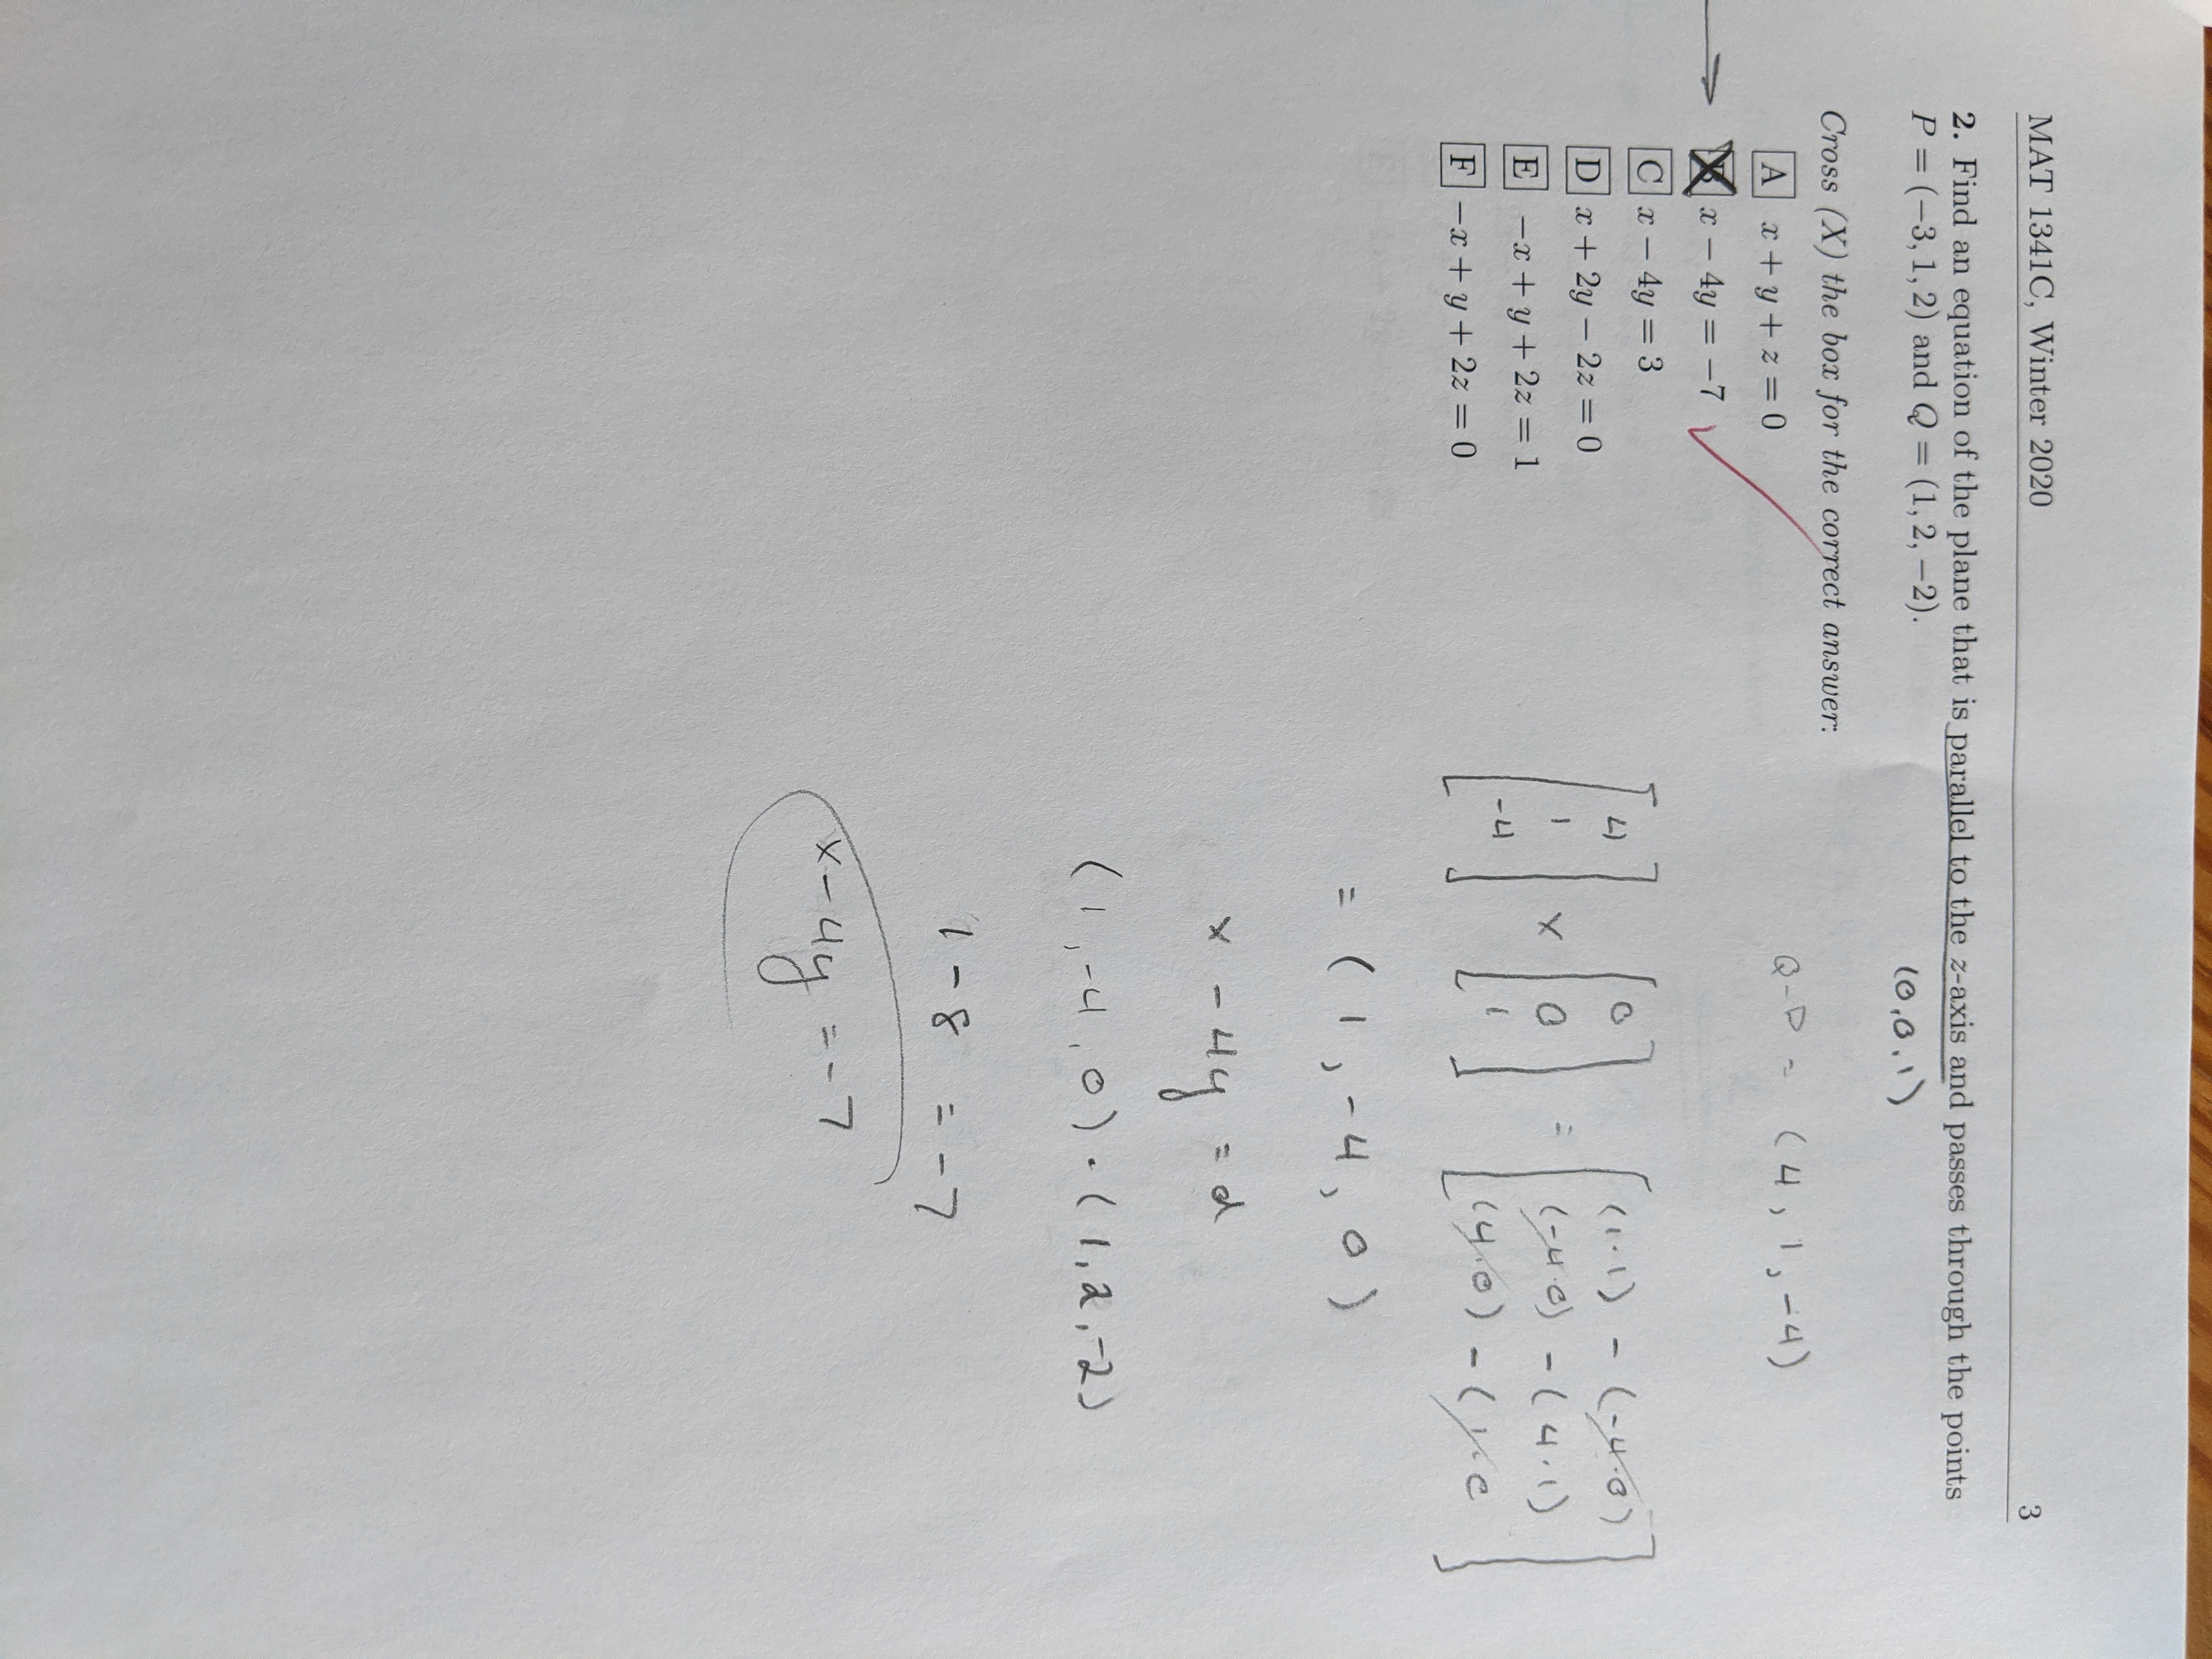 MAT 1341C, Winter 2020 3
2. Find an equation of the plane that is parallel to the z-axis and passes through the points
P = (−3, 1, 2) and Q = (1, 2, −2).
(0,0,1)
Cross (X) the box for the correct answer:
Q-P = (4, 1, -4)
A x + y + z = 0
x − 4y = −7
C x − 4y = 3
D x + 2y − 2z = 0
E −x + y + 2z = 1
F −x + y + 2z = 0
[4 [0 [(1·1) - (-4·0)
1 × 0 = (-4·0) - (4·1)
-4] 1] (4·0) - (1·0]
= (1, -4, 0)
x - 4y = d
(1, -4, 0) · (1, 2, -2)
1 - 8 = -7
x - 4y = -7